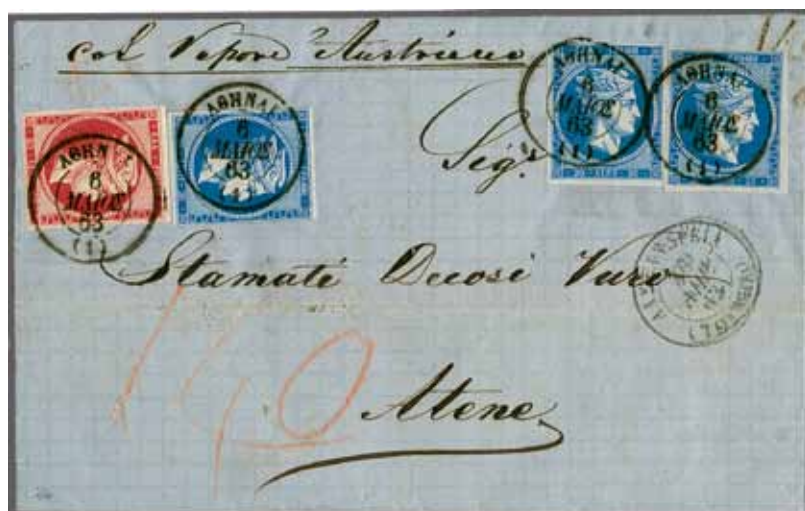 col Vapore Austriaco
ΑΘΗΝΑΙ
6
ΜΑΙΟΣ
63
(1)
ΑΘΗΝΑΙ
6
ΜΑΙΟΣ
63
(1)
ΑΘΗΝΑΙ
6
ΜΑΙΟΣ
63
ΑΘΗΝ
6
ΜΑΙΟΣ
63
(1)
Sigr
Stamati Decosi Vuro
Atene